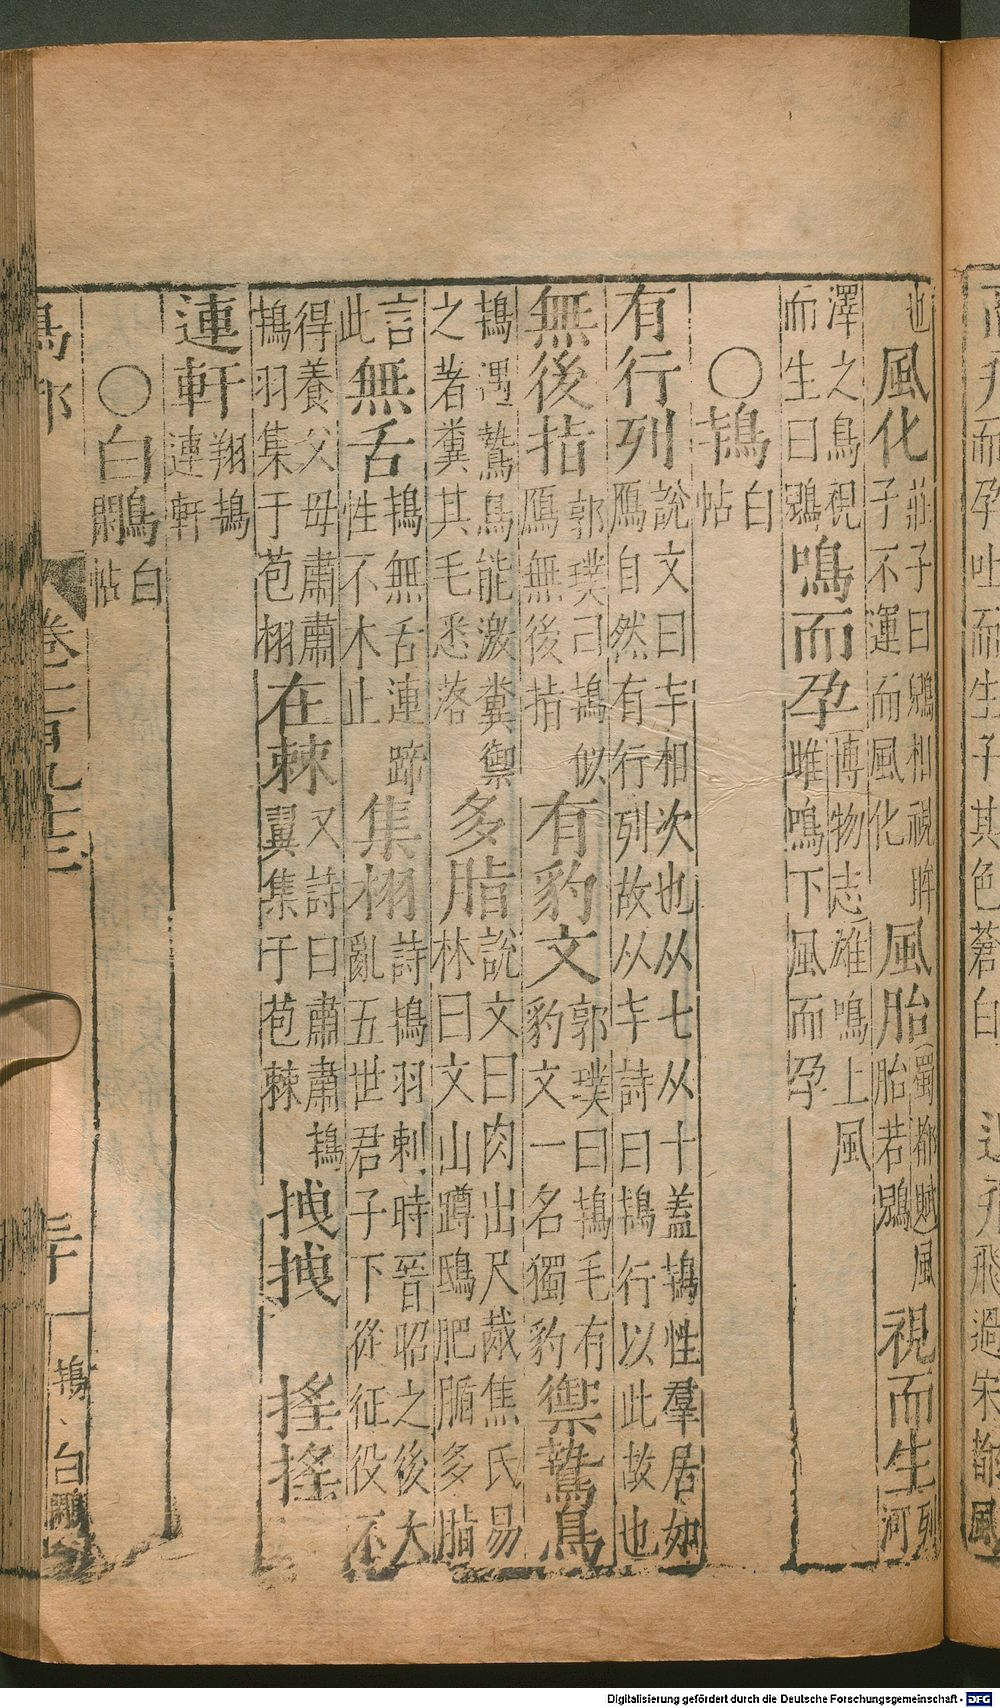 也風化莊子曰鶂相視眸子不運而風化風胎蜀都賦風胎若鶂視而生列河
澤之鳥視而生曰鶂鳴而孕博物志雄鳴上風雌鳴下風而孕
○鴇白帖
有行列說文曰𠤏相次也从七从十蓋鴇性羣居如鴈自然有行列故从𠤏詩曰鴇行以此故也
無後指郭璞曰鴇似鴈無後指有豹文郭璞曰鴇毛有豹文一名獨豹禦鷙鳥
鴇遇鷙鳥能激糞禦之著糞其毛悉落多脂說文曰肉出尺胾焦氏易林曰文山蹲鴟肥腯多脂
言此無舌鴇無舌連蹄性不木止集栩詩鴇羽刺時晉昭之後大亂五世君子下從征役不
得養父母肅肅鴇羽集于苞栩在棘又詩曰肅肅鴇翼集于苞棘拽拽 搖搖
連軒翔鴇連軒
○白鷳白帖
鳥部 卷一百九十三 三十一 鴇 白鷳
其色蒼白
飛過宋都
Digitalisierung gefördert durch die Deutsche Forschungsgemeinschaft - DFG